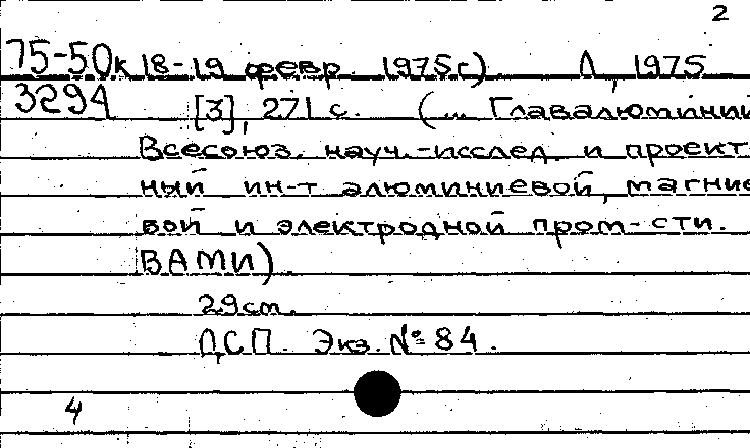 2
75-50к 18-19 февр. 1975г) Л, 1975
3294 [3], 271 с. (... Главалюминий
Всесоюз. науч.-исслед. и проект-
ный ин-т алюминиевой, магние-
вой и электродной пром-сти.
ВАМИ).
29 см.
ДСП. Экз. № 84.
4